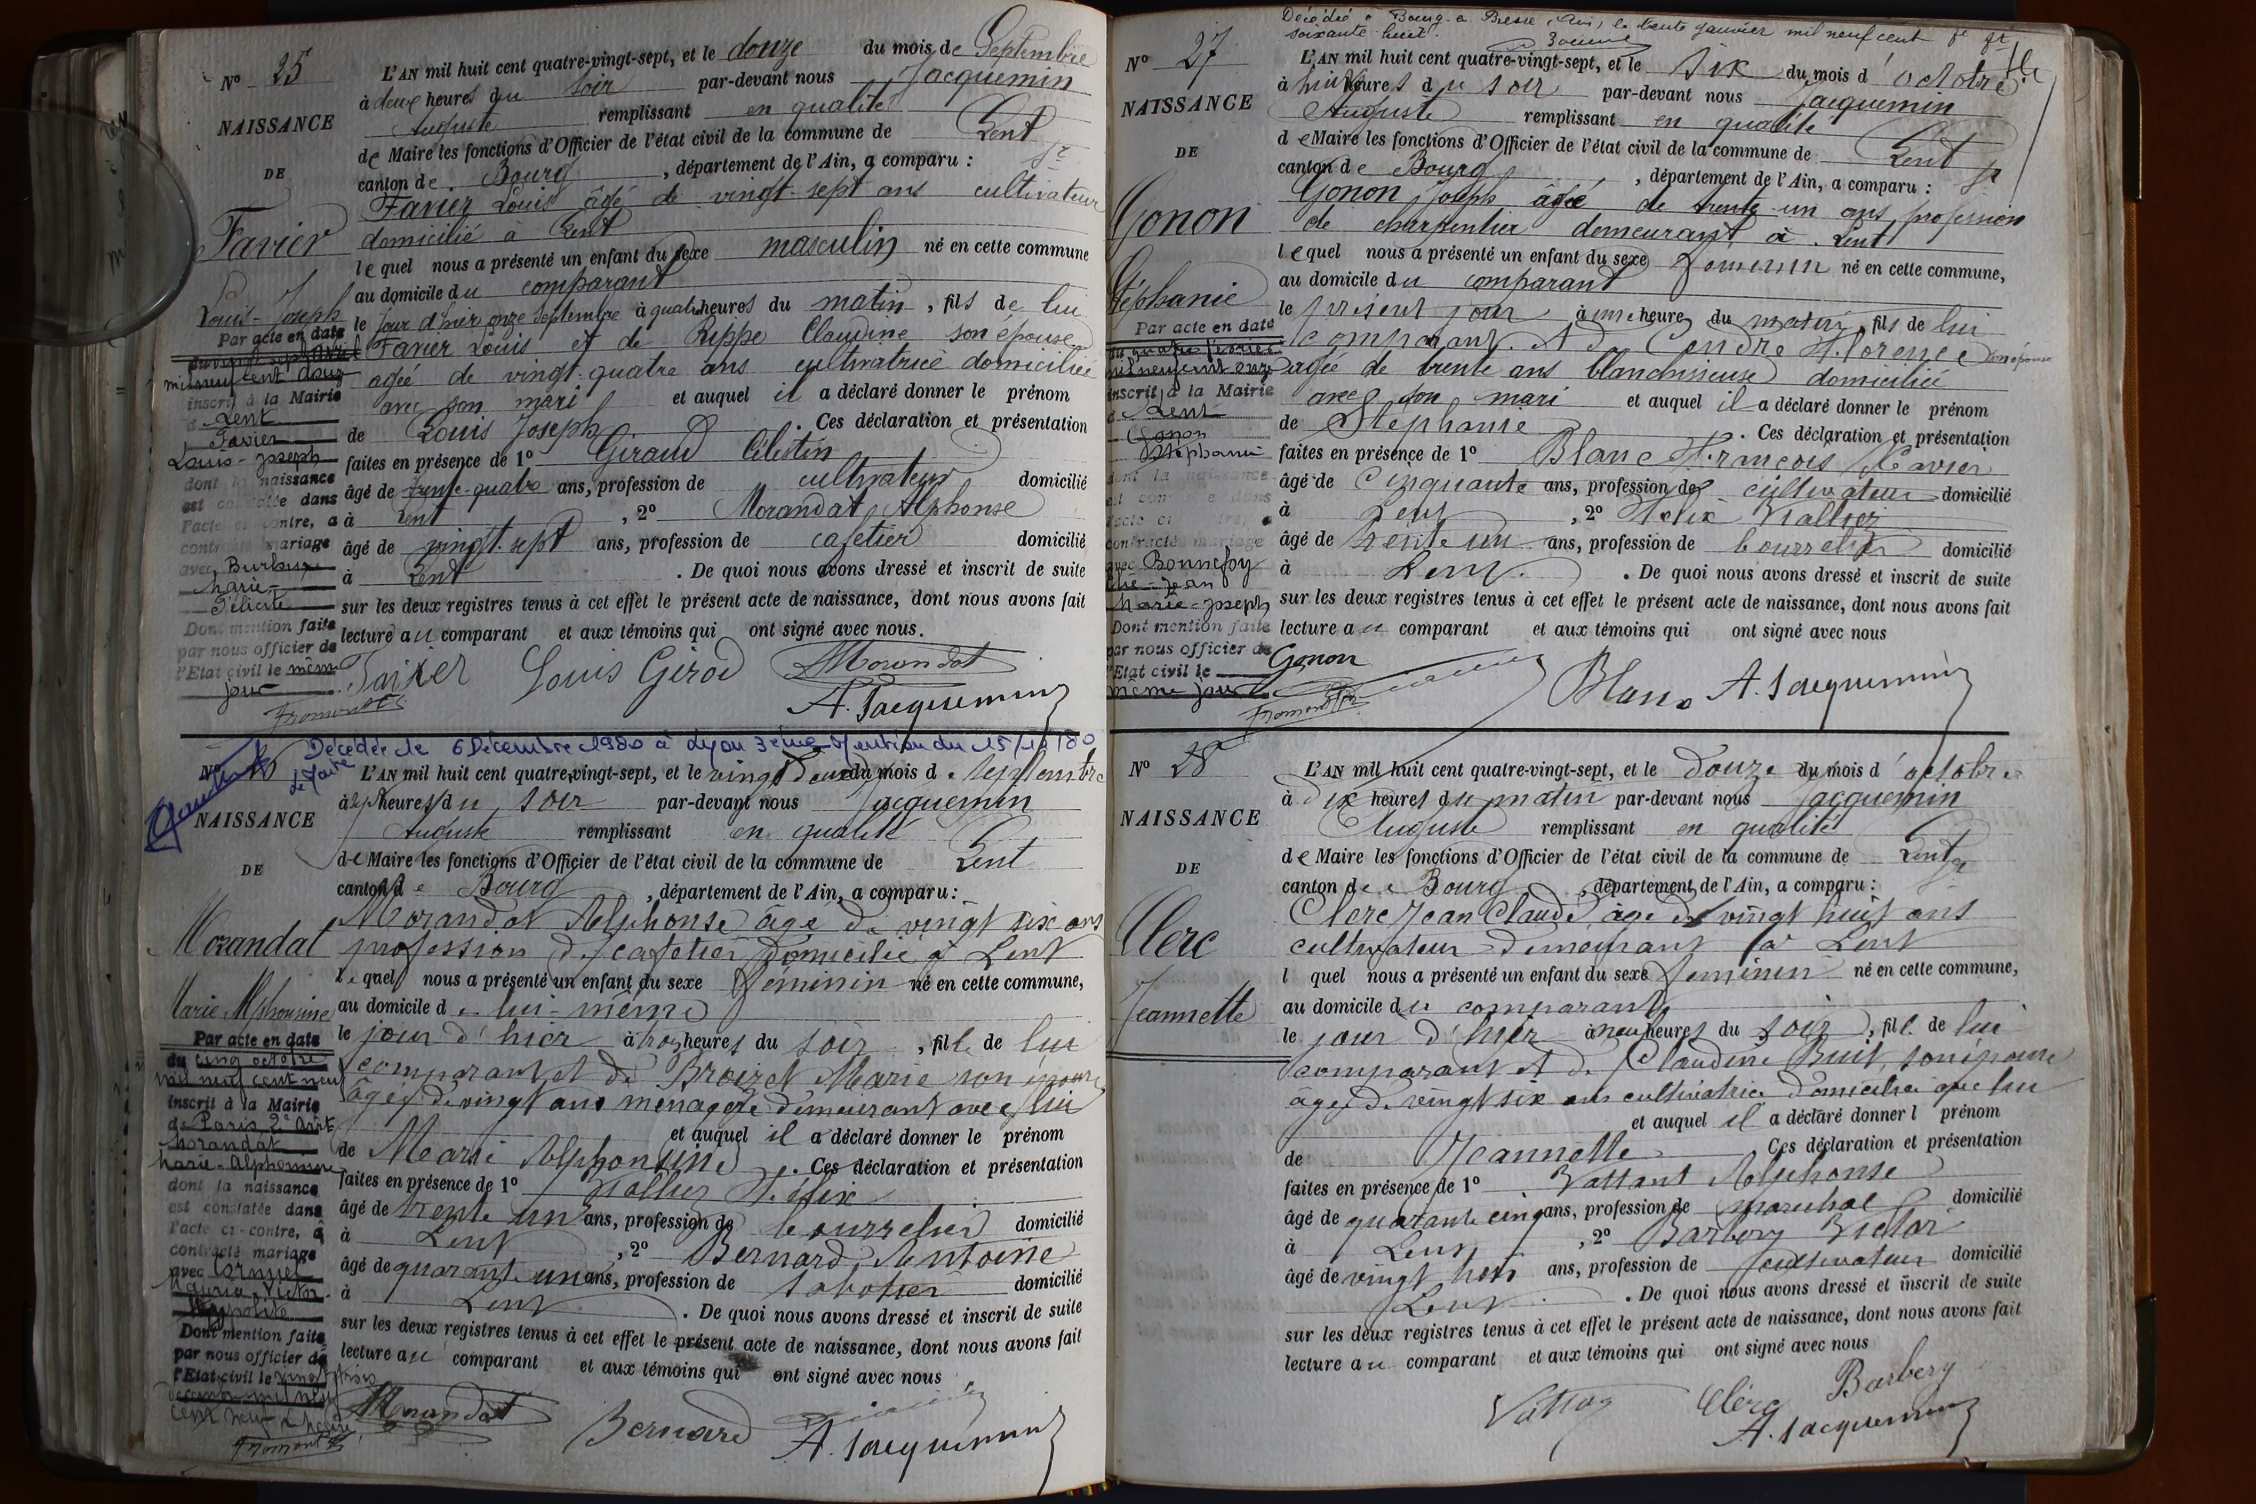 N° 25
NAISSANCE
DE
Favier
Louis-Joseph
Par acte en date
du vingt sept avril
mil neuf cent douze
inscrit à la Mairie
à Lent
Favier
Louis-Joseph
dont la naissance
est constatée dans
l'acte ci-contre, a
contracté mariage
avec
Marie-
Félicité
Dont mention faite
par nous officier de
l'Etat civil le même
jour
L'AN mil huit cent quatre-vingt-sept, et le douze du mois de Septembre
à deux heures du soir par-devant nous Jacquemin
Auguste remplissant en qualité
de Maire les fonctions d'Officier de l'état civil de la commune de Lent
canton de Bourg, département de l'Ain, a comparu :
Favier Louis âgé de vingt-sept ans cultivateur
domicilié à Lent
lequel nous a présenté un enfant du sexe masculin né en cette commune
au domicile du comparant
le jour d'hier onze septembre à quatre heures du matin, fils de lui
Favier Louis et de Rippe Claudine son épouse
agée de vingt-quatre ans cultivatrice domiciliée
avec son mari et auquel il a déclaré donner le prénom
de Louis Joseph. Ces déclaration et présentation
faites en présence de 1° Giraud Célestin
âgé de trente-quatre ans, profession de cultivateur domicilié
à Lent, 2° Morandat Alphonse
âgé de vingt-sept ans, profession de cafetier domicilié
à Lent. De quoi nous avons dressé et inscrit de suite
sur les deux registres tenus à cet effet le présent acte de naissance, dont nous avons fait
lecture au comparant et aux témoins qui ont signé avec nous.
Favier Louis Girod Morandat
A. Jacquemin
Décédée le 6 Décembre 1980 à Lyon 3ème Mention du 15/12/80
le Maire
NAISSANCE
DE
Morandat
Marie Alphonsine
Par acte en date
du cinq octobre
mil neuf cent neuf
inscrit à la Mairie
de Paris 2e Arrt
Morandat
Marie-Alphonsine
dont la naissance
est constatée dans
l'acte ci-contre, a
contracté mariage
avec Cornuel
Victor-
Hippolite
Dont mention faite
par nous officier de
l'Etat civil le vingt trois
L'AN mil huit cent quatre-vingt-sept, et le vingt deux du mois de Septembre
à sept heures du soir par-devant nous Jacquemin
Auguste remplissant en qualité
de Maire les fonctions d'Officier de l'état civil de la commune de Lent
canton de Bourg, département de l'Ain, a comparu :
Morandat Alphonse âgé de vingt six ans
profession de cafetier domicilié à Lent
lequel nous a présenté un enfant du sexe féminin né en cette commune,
au domicile de lui-même
le jour d'hier à trois heures du soir, fille de lui
comparant et de Broizet Marie son épouse
âgée de vingt ans ménagère demeurant avec lui
et auquel il a déclaré donner le prénom
de Marie Alphonsine. Ces déclaration et présentation
faites en présence de 1° Viallier Félix
âgé de trente un ans, profession de bourrelier domicilié
à Lent, 2° Bernard Antoine
âgé de quarante un ans, profession de sabotier domicilié
à Lent. De quoi nous avons dressé et inscrit de suite
sur les deux registres tenus à cet effet le présent acte de naissance, dont nous avons fait
lecture au comparant et aux témoins qui ont signé avec nous
Morandat Bernard
A. Jacquemin
Décédée à Bourg-en-Bresse (Ain) le trente janvier mil neuf cent
soixante huit.
N° 27
NAISSANCE
DE
Gonon
Stéphanie
Par acte en date
du quatre février
mil neuf cent onze
inscrit à la Mairie
à Lent
Gonon
Stéphanie
dont la naissance
contracté mariage
avec Bonnefoy
Jean
Marie-Joseph
Dont mention faite
par nous officier de
l'Etat civil le
même jour
L'AN mil huit cent quatre-vingt-sept, et le six du mois d'octobre
à huit heures du soir par-devant nous Jacquemin
Auguste remplissant en qualité
de Maire les fonctions d'Officier de l'état civil de la commune de Lent
canton de Bourg, département de l'Ain, a comparu :
Gonon Joseph âgé de trente-un ans profession
de charpentier demeurant à Lent
lequel nous a présenté un enfant du sexe féminin né en cette commune,
au domicile du comparant
le présent jour à une heure du matin, fils de lui
comparant et de Cendre Florence son épouse
agée de trente ans blanchisseuse domiciliée
avec son mari et auquel il a déclaré donner le prénom
de Stéphanie. Ces déclaration et présentation
faites en présence de 1° Blanc François Xavier
âgé de cinquante ans, profession de cultivateur domicilié
à Lent, 2° Félix Viallier
âgé de trente un ans, profession de bourrelier domicilié
à Lent. De quoi nous avons dressé et inscrit de suite
sur les deux registres tenus à cet effet le présent acte de naissance, dont nous avons fait
lecture au comparant et aux témoins qui ont signé avec nous
Gonon Blanc A. Jacquemin
N° 28
NAISSANCE
DE
Clerc
Jeannette
L'AN mil huit cent quatre-vingt-sept, et le douze du mois d'octobre
à dix heures du matin par-devant nous Jacquemin
Auguste remplissant en qualité
de Maire les fonctions d'Officier de l'état civil de la commune de Lent
canton de Bourg, département de l'Ain, a comparu :
Clerc Jean Claude âgé de vingt huit ans
cultivateur demeurant à Lent
l quel nous a présenté un enfant du sexe féminin né en cette commune,
au domicile du comparant
le jour d'hier à neuf heures du soir, fille de lui
comparant et de Claudine Buit son épouse
âgée de vingt six ans cultivatrice domiciliée avec lui
et auquel il a déclaré donner l prénom
de Jeannette Ces déclaration et présentation
faites en présence de 1° Vattant Alphonse
âgé de quarante cinq ans, profession de maréchal domicilié
à Lent, 2° Barbery Victor
âgé de vingt trois ans, profession de cultivateur domicilié
Lent. De quoi nous avons dressé et inscrit de suite
sur les deux registres tenus à cet effet le présent acte de naissance, dont nous avons fait
lecture au comparant et aux témoins qui ont signé avec nous
Clerc Barbery
A. Jacquemin